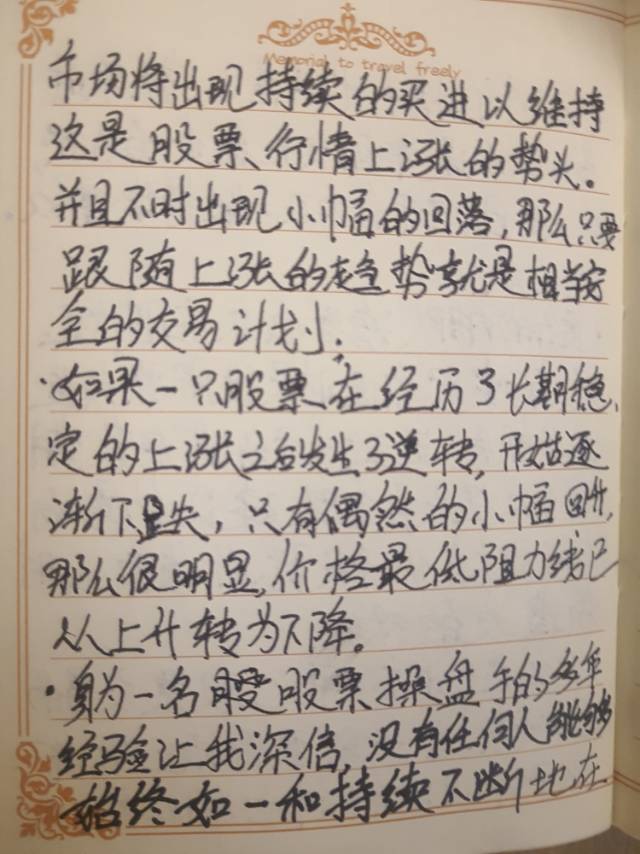 Memorial to travel freely
市场将出现持续的买进以维持
这是股票、行情上涨的势头。
并且不时出现小幅的回落,那么只要
跟随上涨的趋势就是相当安
全的交易计划.
·如果一只股票在经历了长期稳、
定的上涨之后发生了逆转,开始逐
渐下跌,只有偶然的小幅回升,
那么很明显,价格最低阻力线已
从上升转为下降。
·身为一名股票操盘手的多年
经验让我深信,没有任何人能够
始终如一和持续不断地在